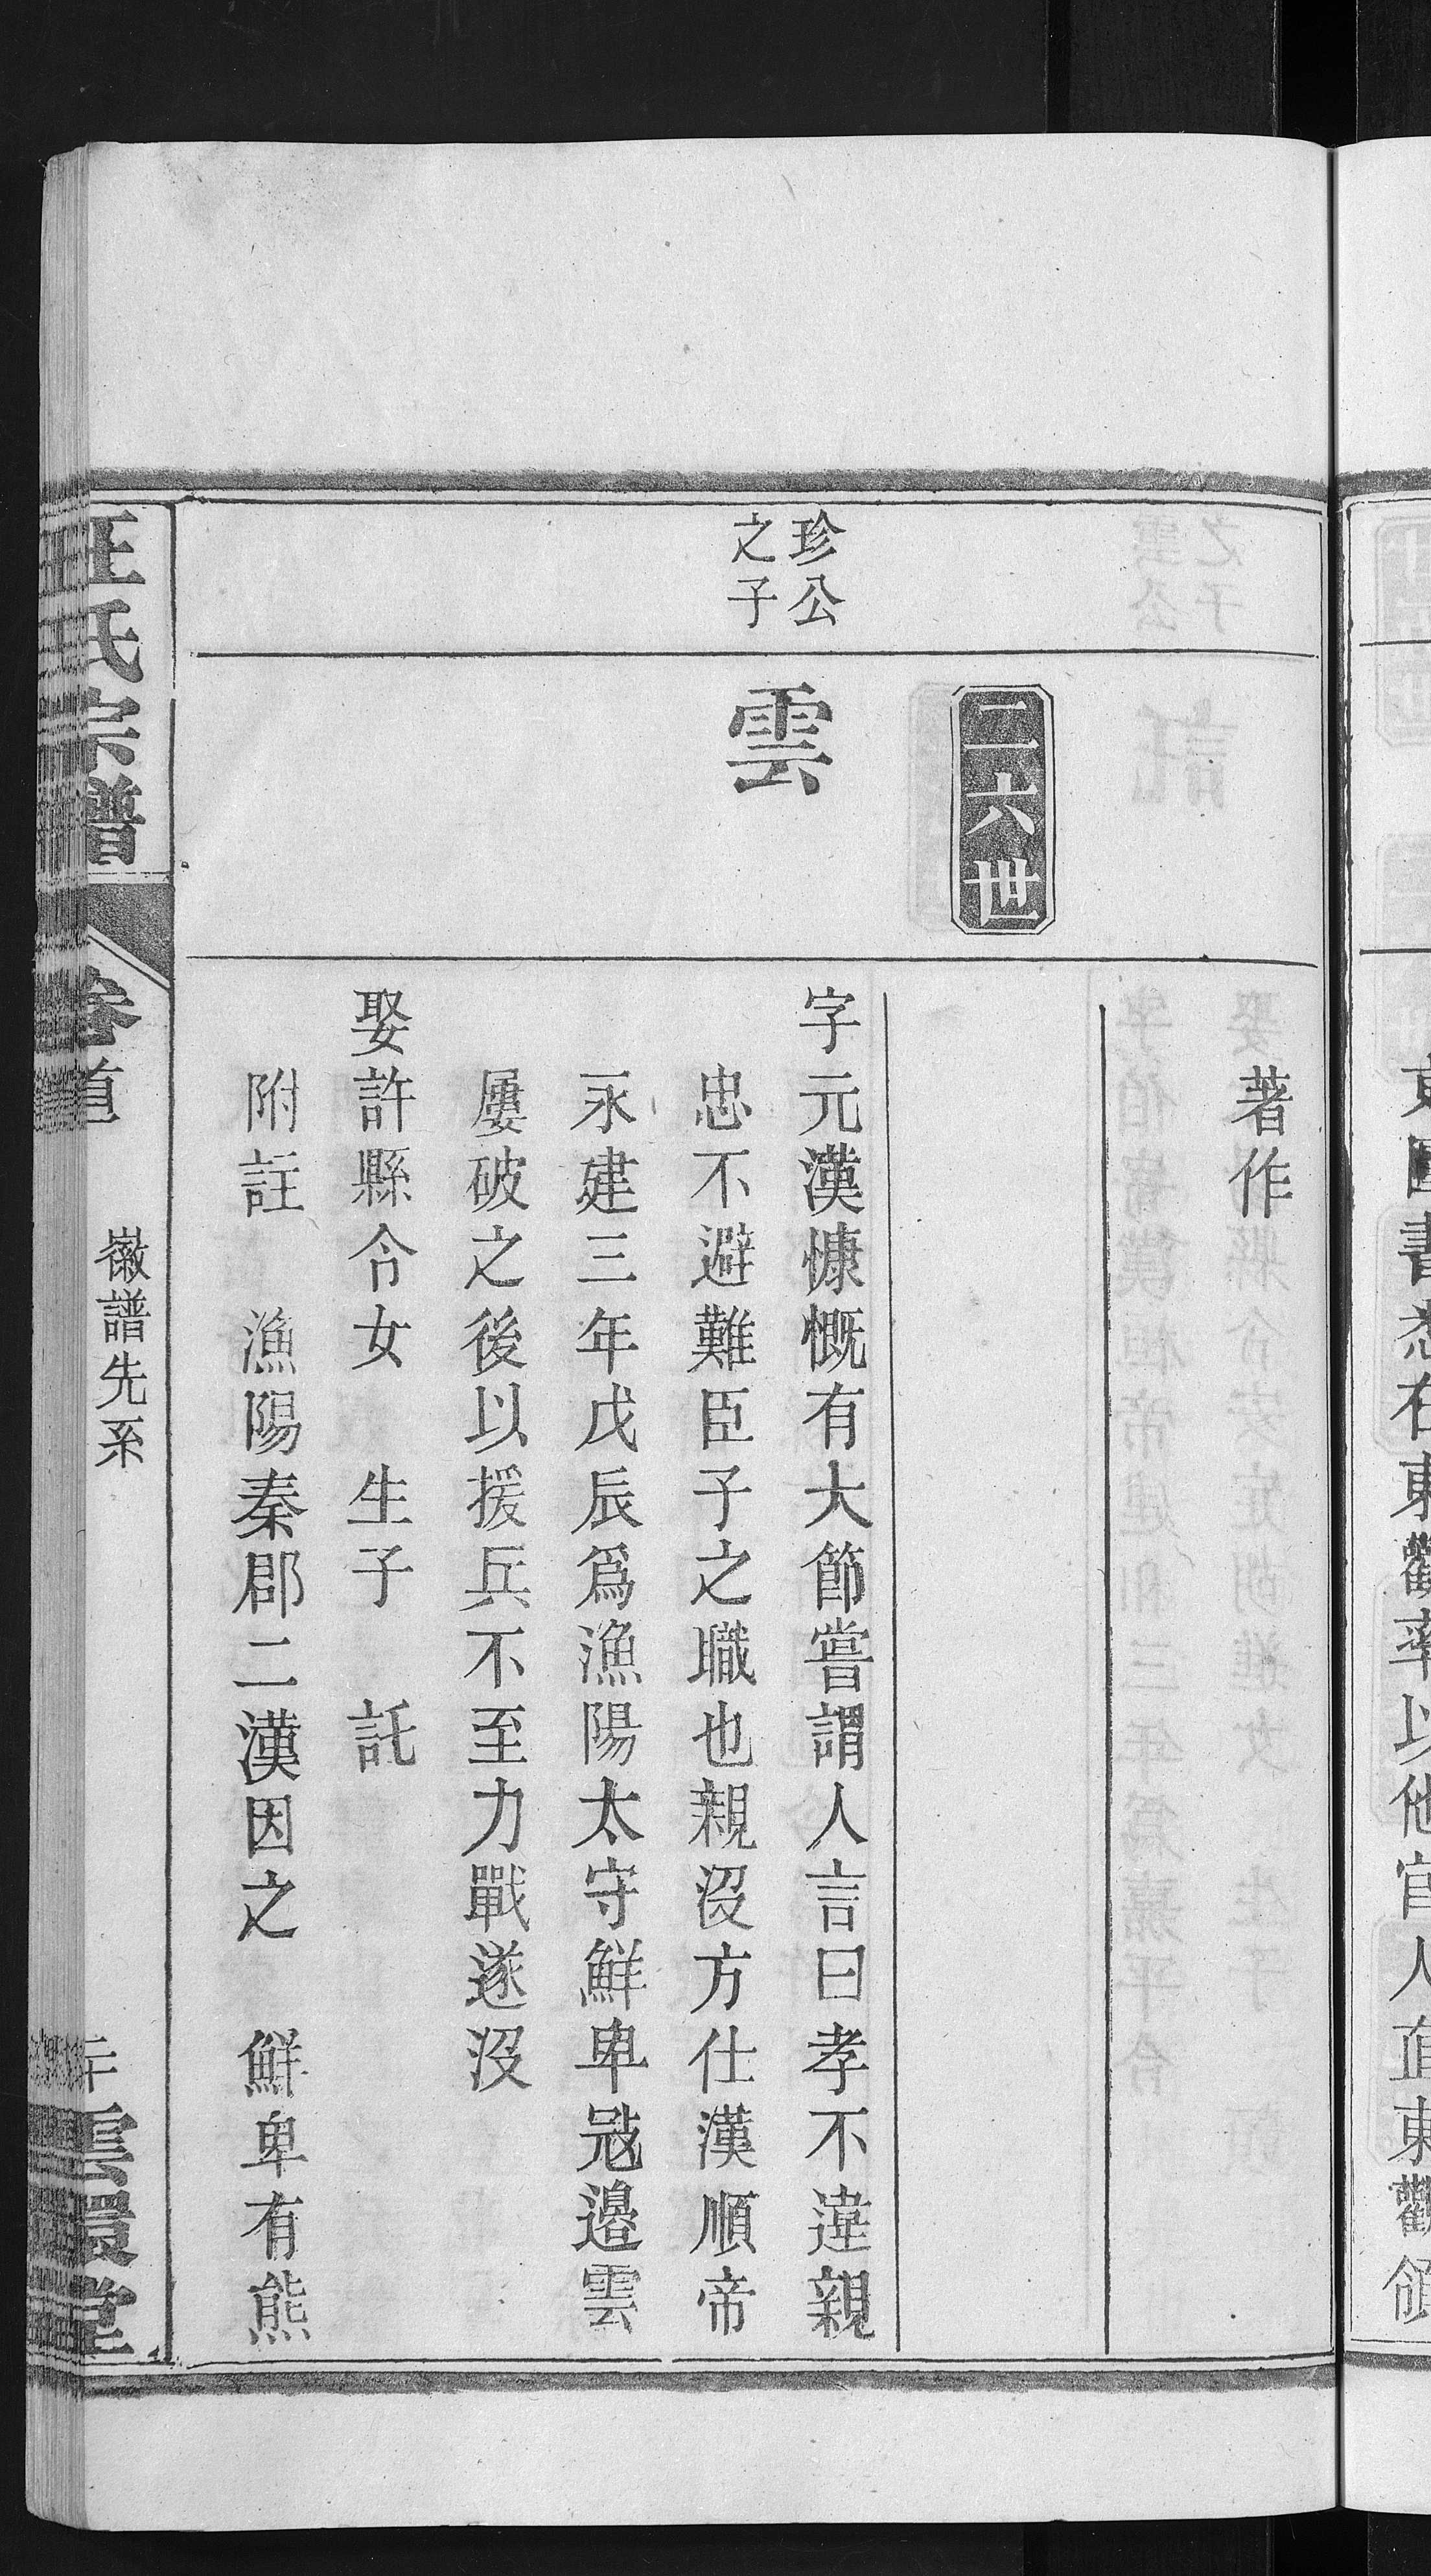 著作
二六世
珍公
之子
雲
字元漢慷慨有大節嘗謂人言曰孝不違親
忠不避難臣子之職也親沒方仕漢順帝
永建三年戊辰爲漁陽太守鮮卑冦邉雲
屢破之後以援兵不至力戰遂沒
娶許縣令女 生子 託
附註 漁陽秦郡二漢因之 鮮卑有熊
汪氏宗譜 卷首 徽譜先系 雲環堂
圖書悉在東觀率以他官人直東觀領